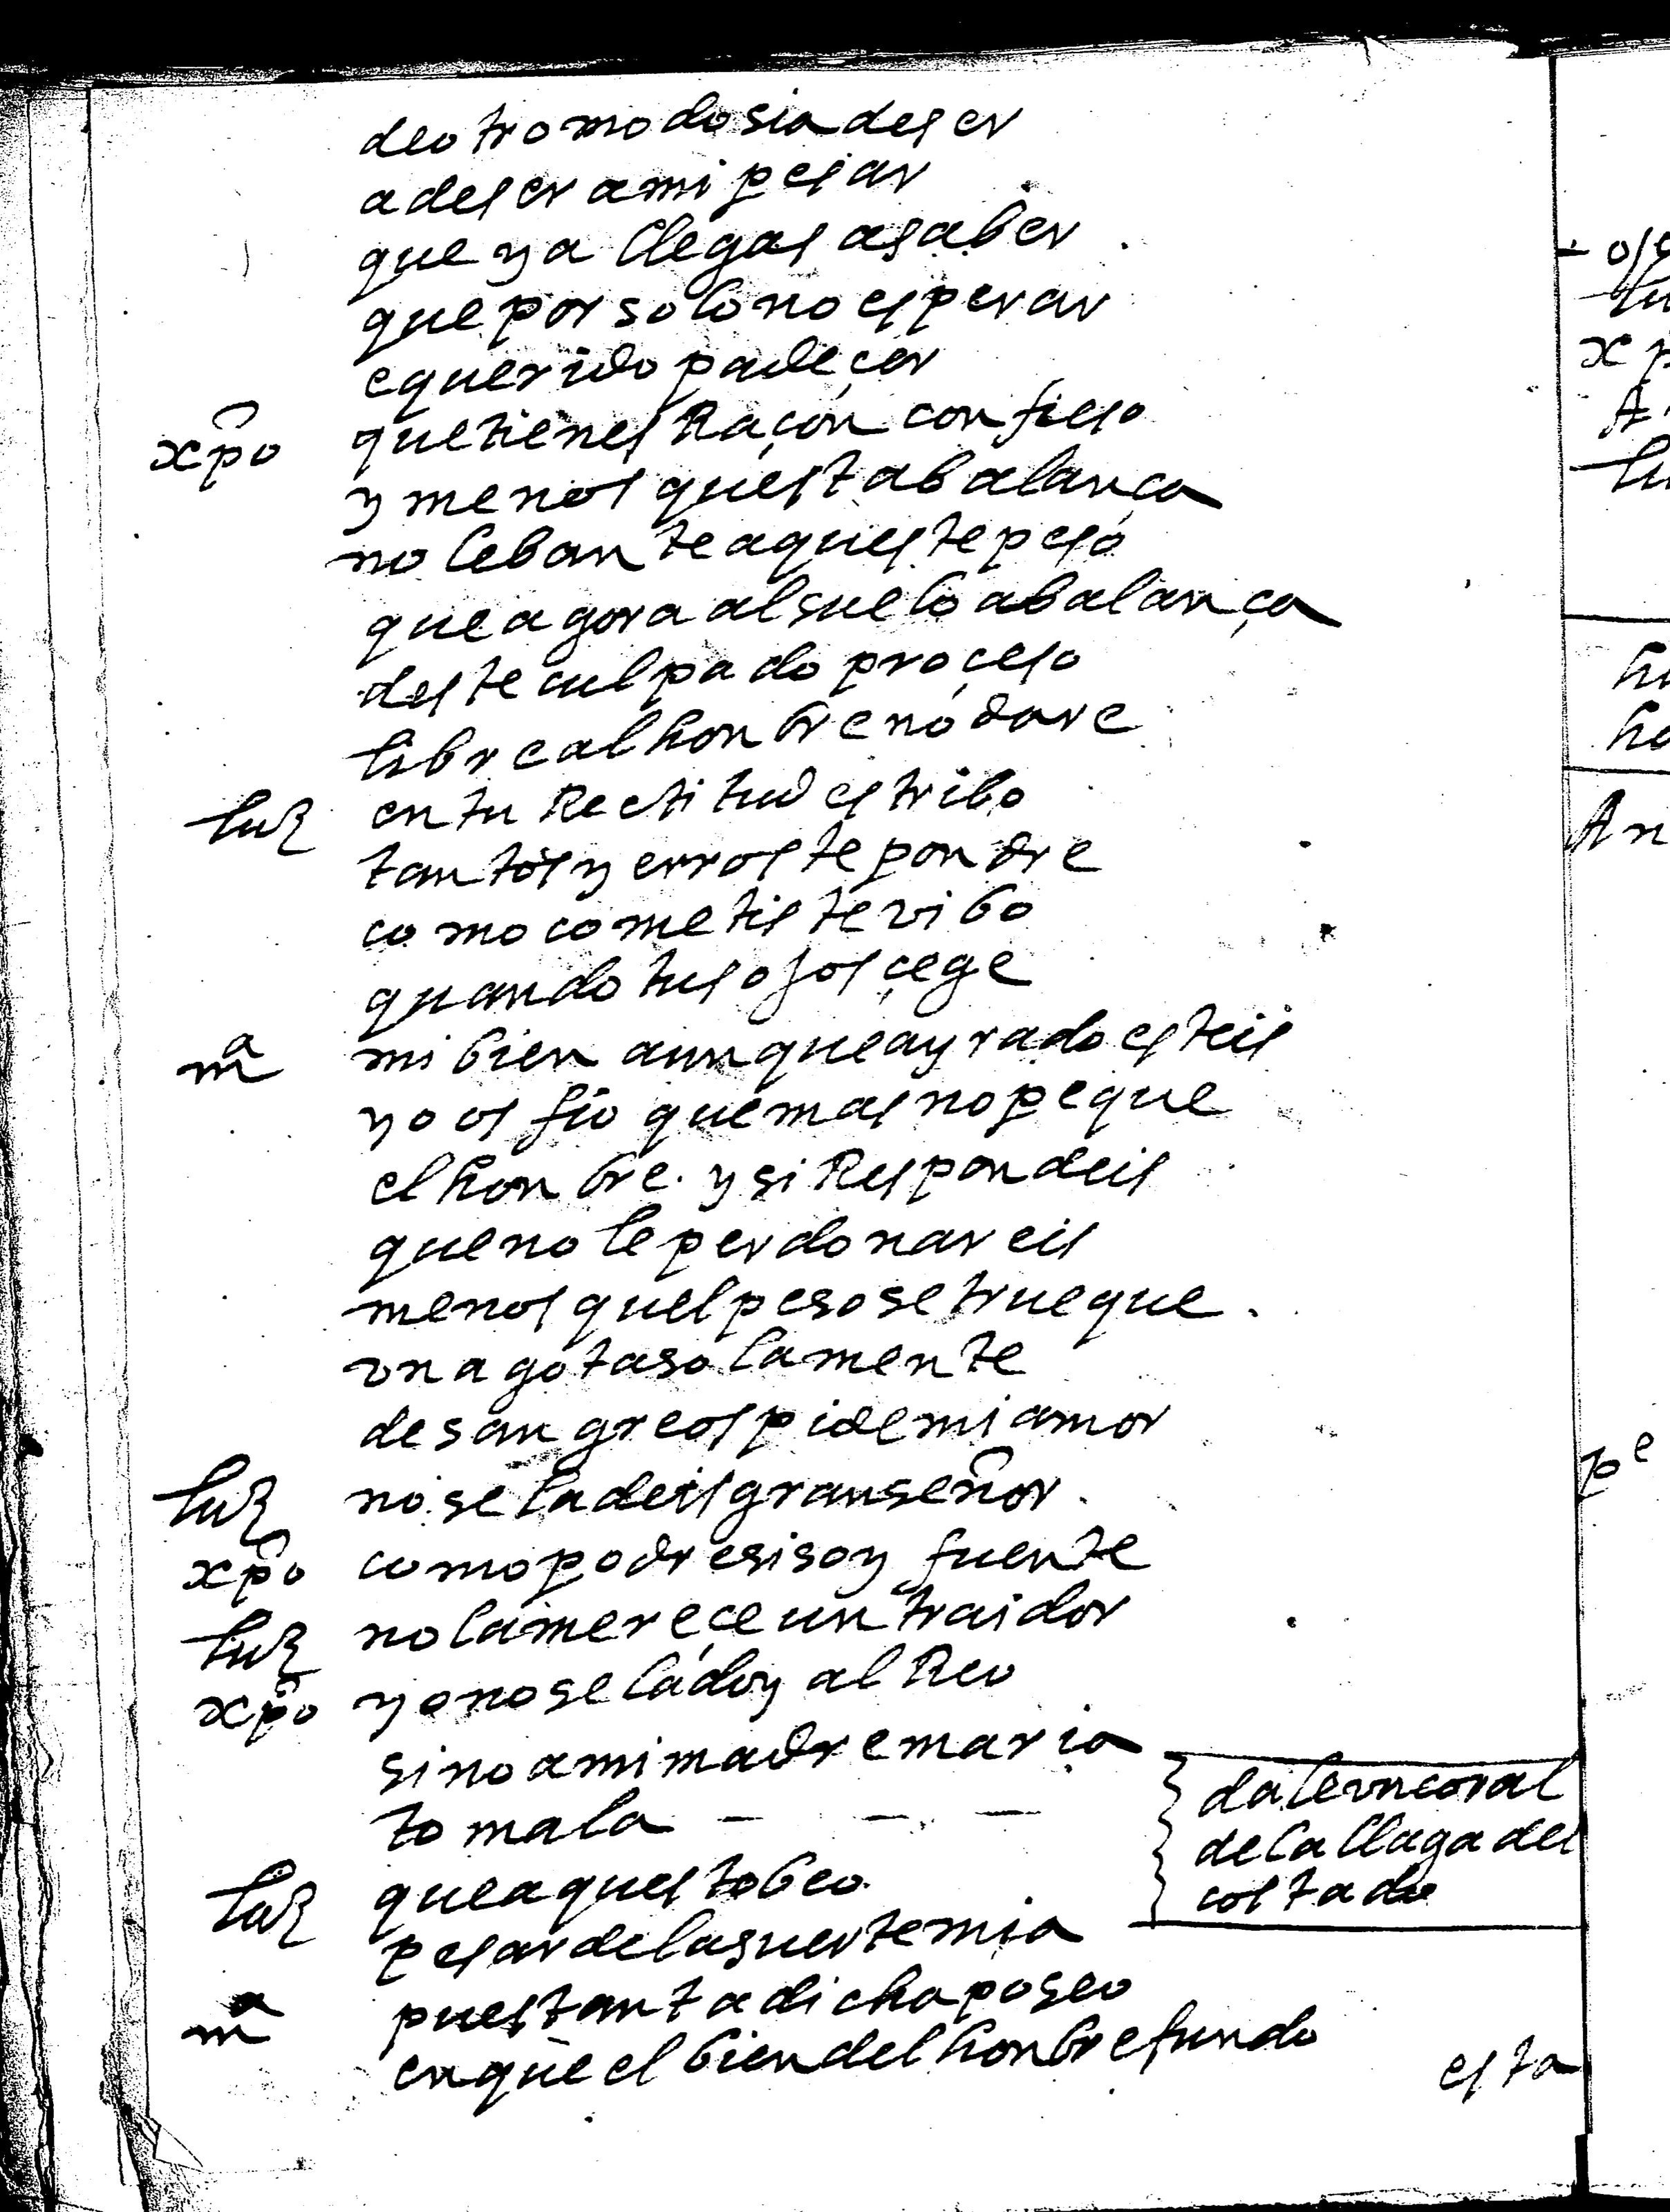 de otro modo si a de ser
a de ser a mi pesar
que ya llegas a saber
que por solo no esperar
e querido padeçer
xpo que tienes Raçon confieso
y menos questa balança
no lebante aqueste peso
que agora al suelo abalança
deste culpado proçeso
libre al honbre no dare
luz en tu Rectitud estribo
tantos yerros te pondre
como cometiste vibo
quando tus ojos çege
mª mi bien aunque ayrado esteis
yo os fio que mas no peque
el honbre. y si Respondeis
que no le perdonareis
menos quel peso se trueque.
vna gota solamente
de sangre os pide mi amor
luz no se la deis gran señor.
xpo como podre si soy fuente
luz no la mereçe un traidor
xpo yo no se la doy al Reo
sino a mi madre maria
tomala — — —
dale vn coral
de la llaga del
costado
luz que aquesto beo.
pesar de la suerte mia
mª pues tanta dicha poseo
en que el bien del honbre fundo
esta